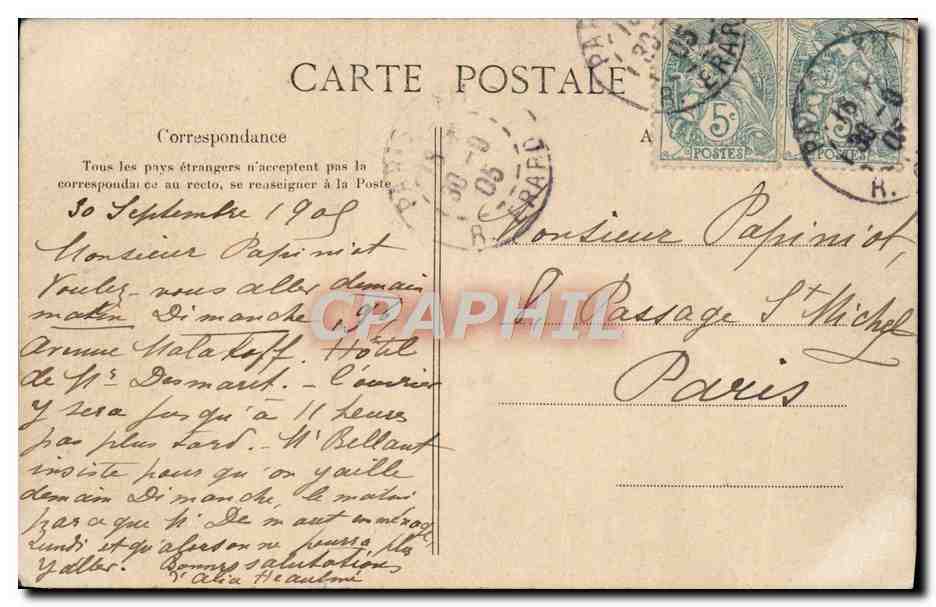 CARTE POSTALE
Correspondance
Tous les pays étrangers n'acceptent pas la
correspondance au recto, se renseigner à la Poste
A
5c
POSTES
5c
POSTES
PARIS
18
30 -9
05
R. ERARD
30 Septembre 1905
Monsieur Papiniot
Voulez-vous aller demain
matin Dimanche, 197
Avenue Malakoff. Hôtel
de Mr Desmarest. - l'ouvrier
y sera jusqu'à 11 heures
pas plus tard. - Mr Bellaut
insiste pour qu'on y aille
demain Dimanche, le matin
parce que Mr De m aut emménage
Lundi et qu'alors on ne pourra plus
y aller. Bonnes salutations
Heaulmé
Monsieur Papiniot,
Passage St Michel
Paris
CPAPHIL